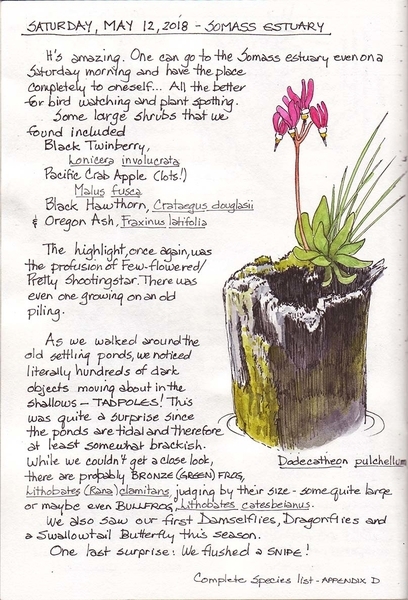 SATURDAY, MAY 12, 2018 - SOMASS ESTUARY
It's amazing. One can go to the Somass estuary even on a
Saturday morning and have the place
completely to oneself... All the better
for bird watching and plant spotting.
Some large shrubs that we
found included
Black Twinberry,
Lonicera involucrata
Pacific Crab Apple (lots!)
Malus fusca
Black Hawthorn, Crataegus douglasii
& Oregon Ash, Fraxinus latifolia
The highlight, once again, was
the profusion of Few-flowered/
Pretty Shootingstar. There was
even one growing on an old
piling.
As we walked around the
old settling ponds, we noticed
literally hundreds of dark
objects moving about in the
shallows - TADPOLES! This
was quite a surprise since
the ponds are tidal and therefore
at least somewhat brackish.
Dodecatheon pulchellum
While we couldn't get a close look,
there are probably BRONZE (GREEN) FROG,
Lithobates (Rana) clamitans, judging by their size - some quite large
or maybe even BULLFROG, Lithobates catesbeianus.
We also saw our first Damselflies, Dragonflies and
a Swallowtail Butterfly this season.
One last surprise: We flushed a SNIPE!
Complete Species list - APPENDIX D